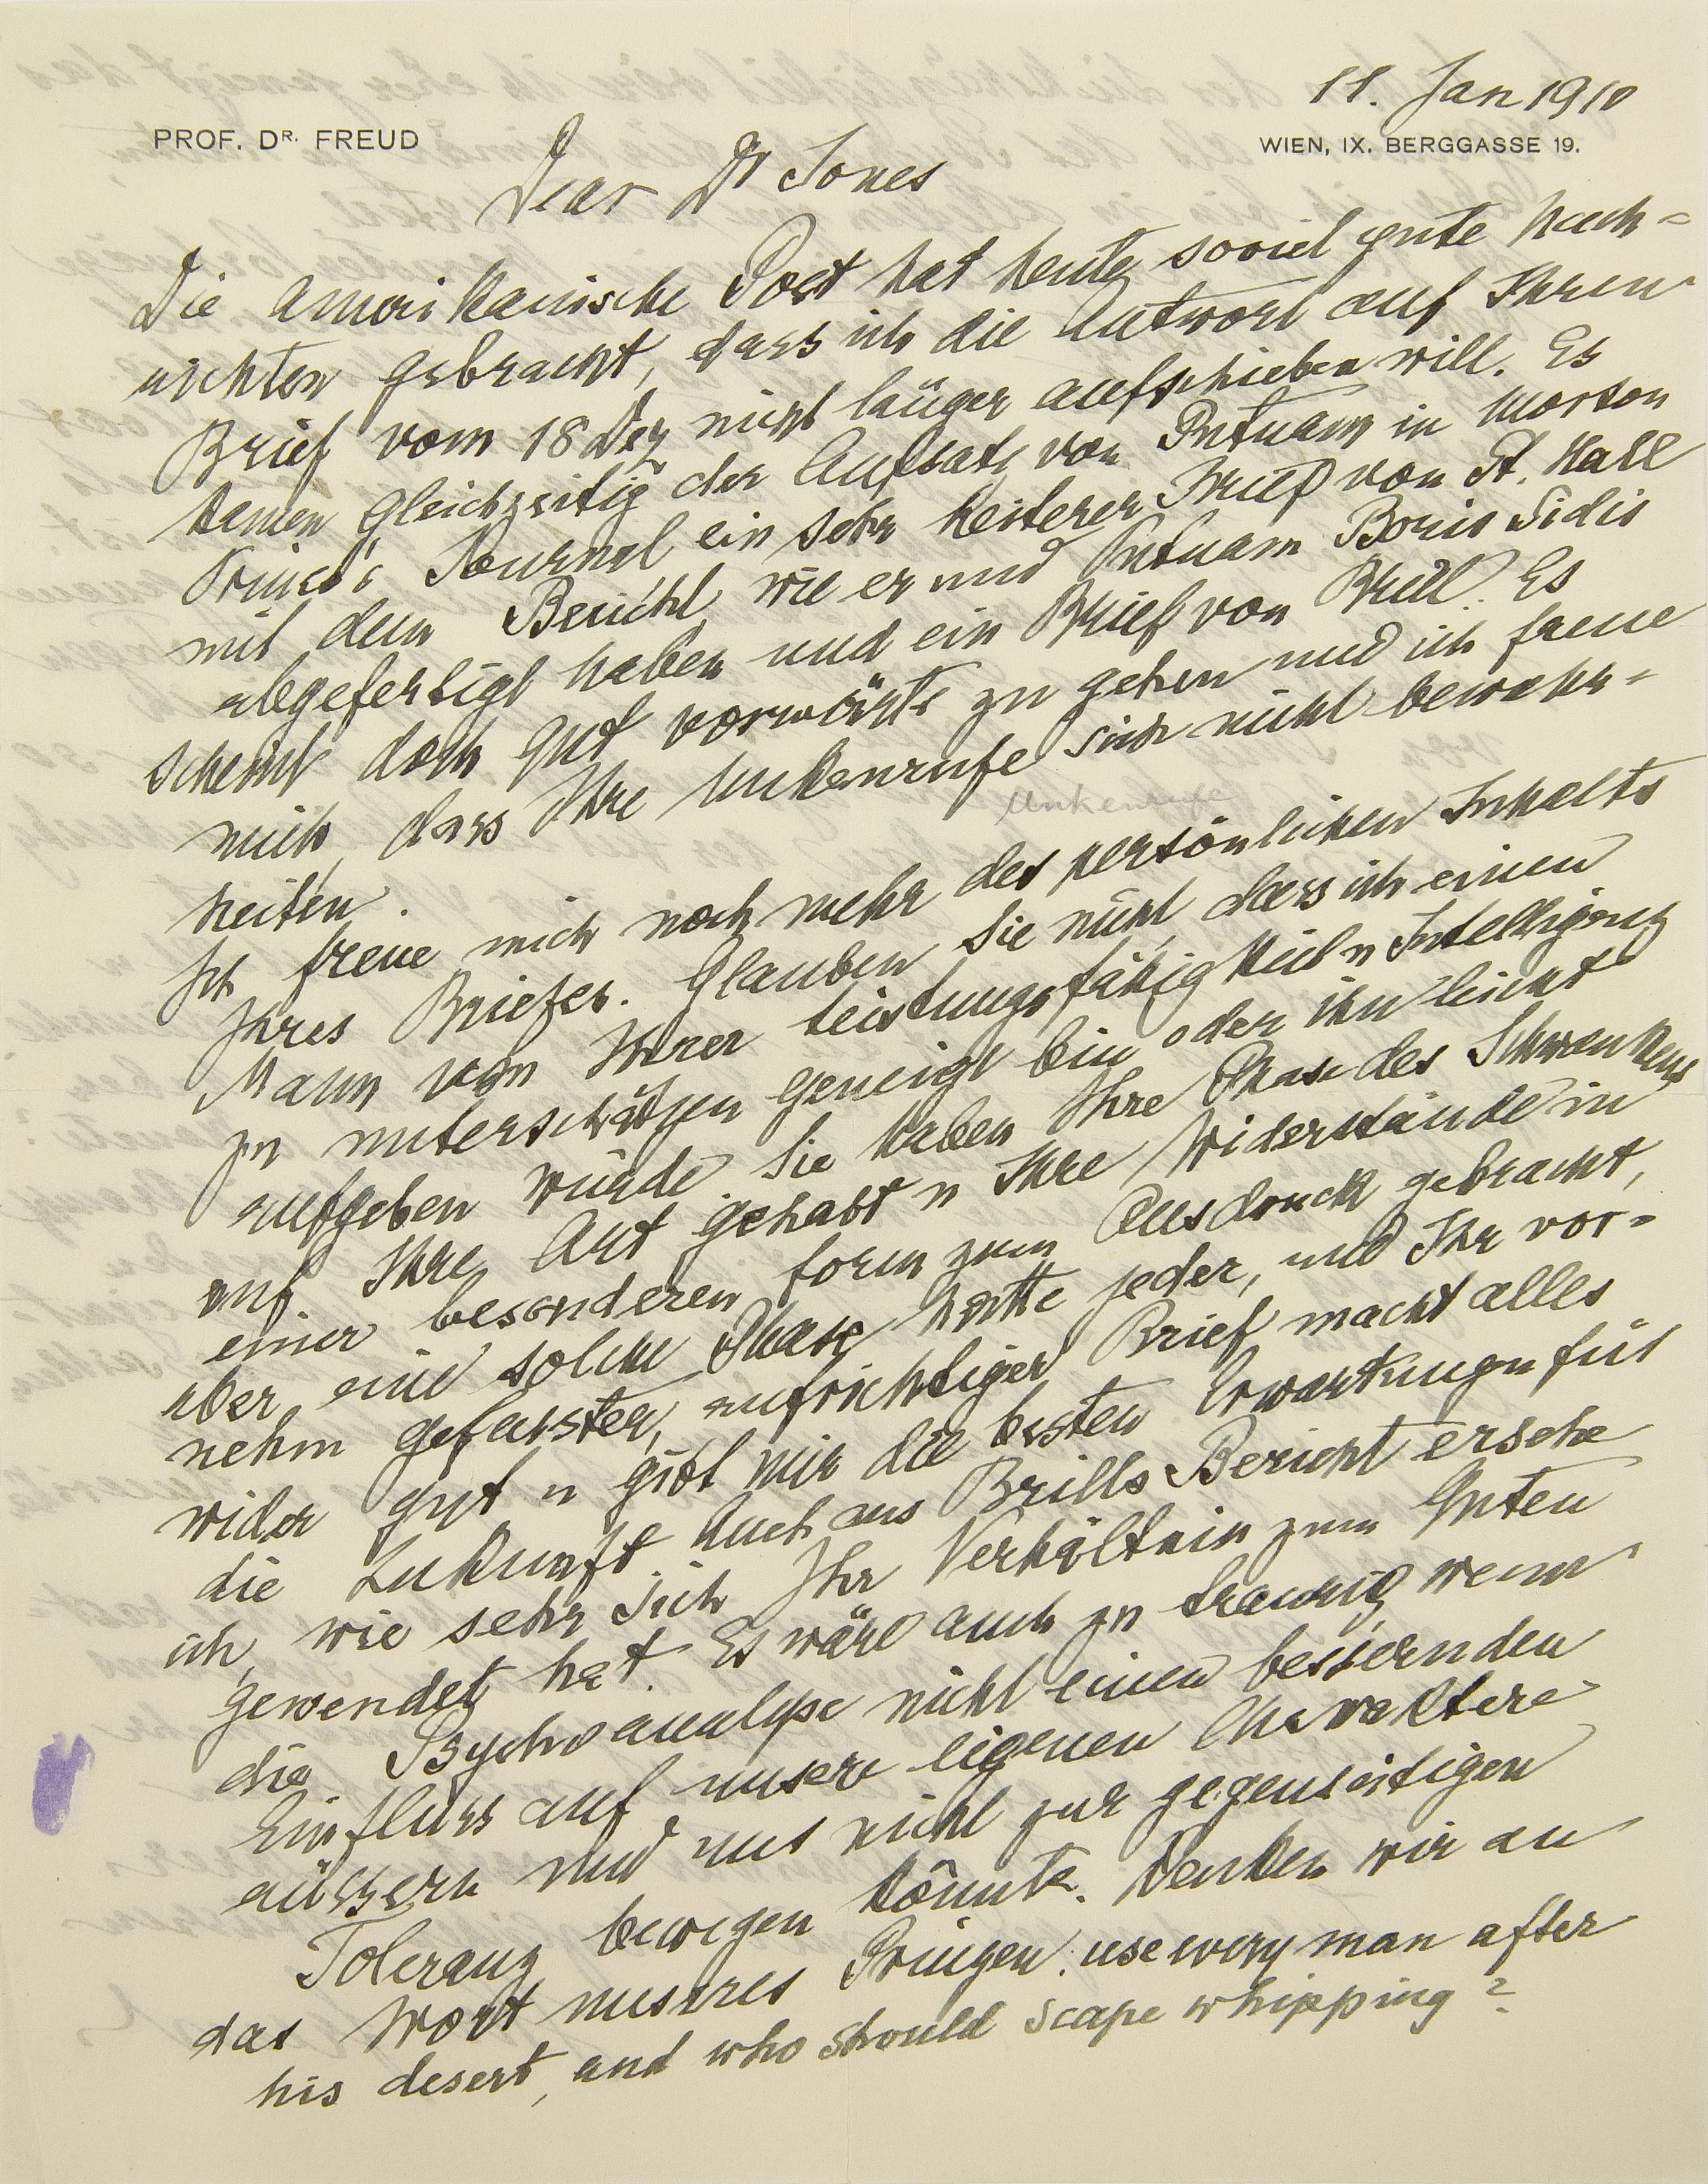 11. Jan 1910
PROF. DR. FREUD
WIEN, IX. BERGGASSE 19.
Dear Dr Jones
Die amerikanische Post hat heute soviel gute Nach=
richten gebracht, dass ich die Antwort auf Ihren
Brief vom 18 Dez nicht länger aufschieben will. Es
kamen gleichzeitig der Aufsatz von Putnam in Morton
Prince's Journal ein sehr heiterer Brief von St. Hall
mit dem Bericht, wie er und Putnam Boris Sidis
abgefertigt haben und ein Brief von Brill. Es
scheint doch gut vorwärts zu gehen und ich freue
mich, dass Ihre Unkenrufe sich nicht bewahr=
Unkenrufe
heiten.
Ich freue mich noch mehr des persönlichen Inhalts
Ihres Briefes. Glauben Sie nicht, dass ich einen
Mann von Ihrer Leistungsfähigkeit u Intelligenz
zu unterschätzen geneigt bin oder ihn leicht
aufgeben würde. Sie haben Ihre Phase des Schwankens
auf Ihre Art gehabt u Ihre Widerstände in
einer besonderen Form zum Ausdruck gebracht,
aber eine solche Phase hatte jeder, und Ihr vor=
nehm gefasster, aufrichtiger Brief macht alles
wider gut u gibt mir die besten Erwartungen für
die Zukunft. Auch aus Brills Bericht ersehe
ich, wie sehr sich Ihr Verhältnis zum Guten
gewendet hat. Es wäre auch zu traurig wenn
die Psychoanalyse nicht einen bessernden
Einfluss auf unsere eigenen Charaktere
äussern und uns nicht zur gegenseitigen
Toleranz bewegen könnte. Denken wir an
das Wort unseres Prinzen: use every man after
his desert, and who should scape whipping?